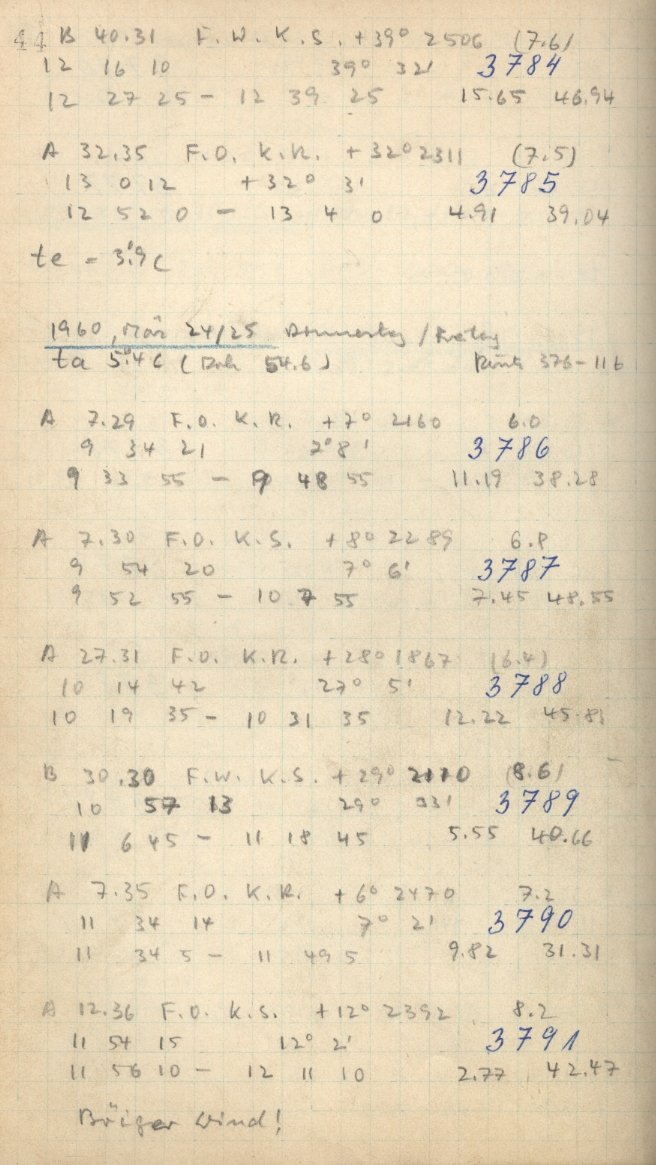 44 B 40.31 F.W. K.S. +39° 2506 (7.6)
12 16 10 39° 32' 3784
12 27 25 - 12 39 25 15.65 46.94
A 32.35 F.O. K.R. +32° 2311 (7.5)
13 0 12 +32° 3' 3785
12 52 0 - 13 4 0 4.91 39.04
te = 3°.9 C
1960, März 24/25 Donnerstag / Freitag
ta 5°.4 C ( 54.6) 376-116
A 7.29 F.O. K.R. +7° 2160 6.0
9 34 21 7° 8' 3786
9 33 55 - 9 48 55 11.19 38.28
A 7.30 F.O. K.S. +8° 2289 6.8
9 54 20 7° 6' 3787
9 52 55 - 10 7 55 7.45 48.55
A 27.31 F.O. K.R. +28° 1867 (6.4)
10 14 42 27° 5' 3788
10 19 35 - 10 31 35 12.22 45.81
B 30.30 F.W. K.S. +29° 2110 (8.6)
10 57 13 29° 31' 3789
11 6 45 - 11 18 45 5.55 40.66
A 7.35 F.O. K.R. +6° 2470 7.2
11 34 14 7° 2' 3790
11 34 5 - 11 49 5 9.82 31.31
A 12.36 F.O. K.S. +12° 2392 8.2
11 54 15 12° 2' 3791
11 56 10 - 12 11 10 2.77 42.47
Böiger Wind!